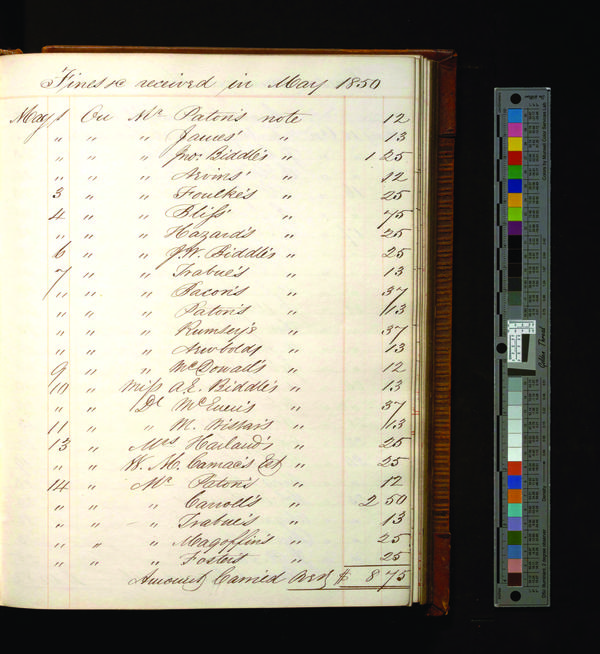 Fines &c received in May 1850
May 1 On Mr Paton's note 12
" " " James' " 13
" " " Jno: Biddle's " 1 25
" " " Nevins' " 12
3 " " Foulke's " 25
4 " " Bliss' " 75
" " " Hazard's " 25
6 " " J. W. Biddle's " 25
7 " " Trabue's " 13
" " " Bacon's " 37
" " " Paton's " 13
" " " Rumsey's " 37
" " " Newbolds " 13
9 " " McDowall's " 12
10 " Miss A. E. Biddle's " 13
" " Dr McEuen's " 37
11 " " M. Wistar's " 13
13 " Mrs Harland's " 25
" " W. M. Camac's " 25
14 " Mr Paton's " 12
" " " Carroll's " 2 50
" " " Trabue's " 13
" " " Magoffin's " 25
" " " Foster's " 25
Amount Carried $ 8 75